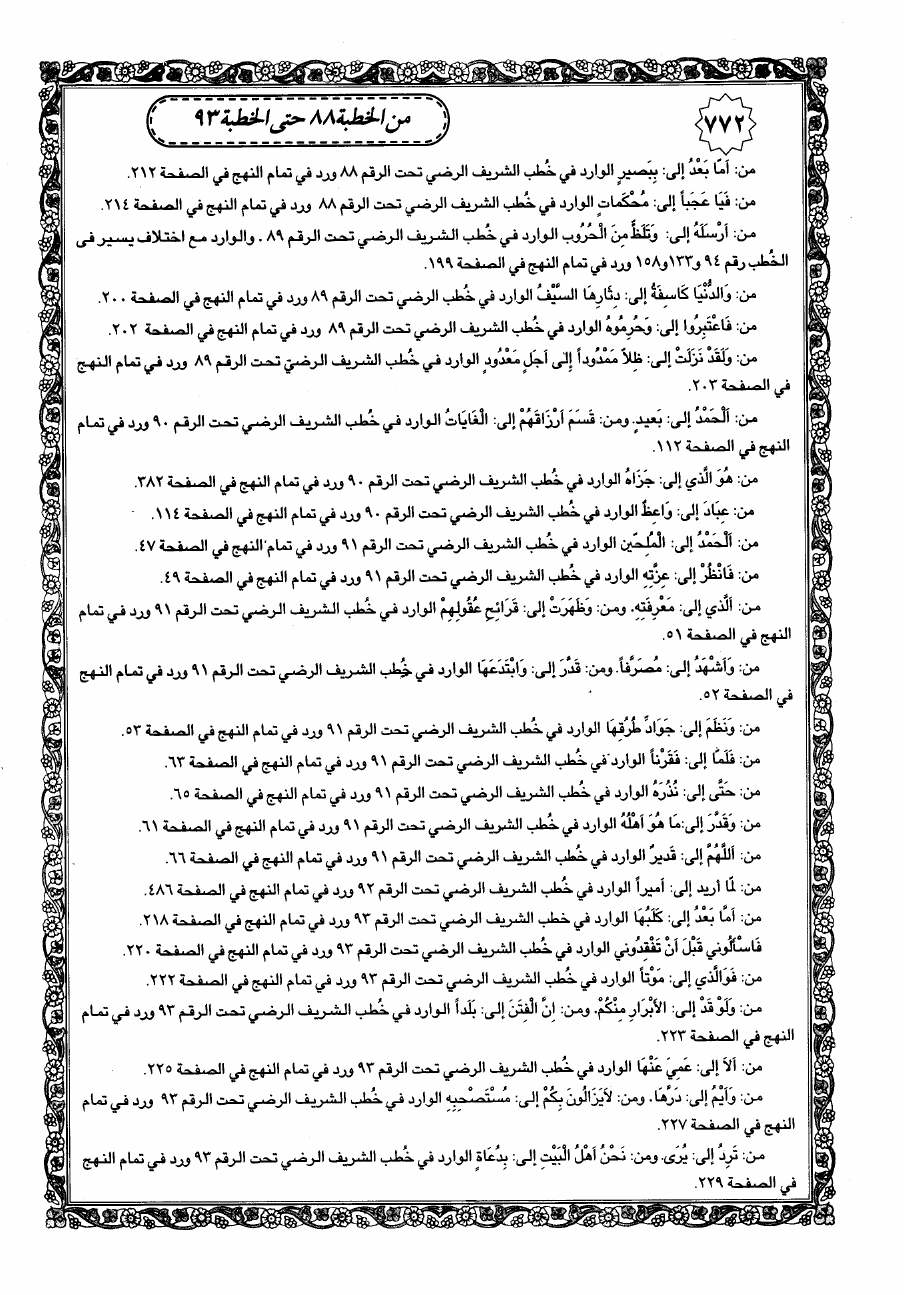 ٧٧٢
من الخطبة ٨٨ حتى الخطبة ٩٣
من: أَمَّا بَعْدُ إلى: بِبَصيرٍ الوارد في خُطب الشريف الرضي تحت الرقم ٨٨ ورد في تمام النهج في الصفحة ٢١٢.
من: فَيَا عَجَباً إلى: مُحْكَماتٍ الوارد في خُطب الشريف الرضي تحت الرقم ٨٨ ورد في تمام النهج في الصفحة ٢١٤.
من: أَرْسَلَهُ إلى: وَتَلَظٍّ مِنَ الْحُرُوبِ الوارد في خُطب الشريف الرضي تحت الرقم ٨٩. والوارد مع اختلاف يسير فى
الخُطب رقم ٩٤ و١٣٣ و١٥٨ ورد في تمام النهج في الصفحة ١٩٩.
من: وَالدُّنْيَا كَاسِفَةُ إلى: دِثَارِهَا السَّيْفُ الوارد في خُطب الشريف الرضي تحت الرقم ٨٩ ورد في تمام النهج في الصفحة ٢٠٠.
من: فَاعْتَبِرُوا إلى: وَحُرِمُوهُ الوارد في خُطب الشريف الرضي تحت الرقم ٨٩ ورد في تمام النهج في الصفحة ٢٠٢.
من: وَلَقَدْ نَزَلَتْ إلى: ظِلاًّ مَمْدُوداً إِلى أَجَلٍ مَعْدُودٍ الوارد في خُطب الشريف الرضيّ تحت الرقم ٨٩ ورد في تمام النهج
في الصفحة ٢٠٣.
من: اَلْحَمْدُ إلى: بَعيدٍ. ومن: قَسَمَ أَرْزَاقَهُمْ إلى: الْغَايَاتُ الوارد في خُطب الشريف الرضي تحت الرقم ٩٠ ورد في تمام
النهج في الصفحة ١١٢.
من: هُوَ الَّذي إلى: جَزَاهُ الوارد في خُطب الشريف الرضي تحت الرقم ٩٠ ورد في تمام النهج في الصفحة ٣٨٢.
من: عِبَادَ إلى: وَاعِظٌ الوارد في خُطب الشريف الرضي تحت الرقم ٩٠ ورد في تمام النهج في الصفحة ١١٤.
من: اَلْحَمْدُ إلى: الْمُلِحّين الوارد في خُطب الشريف الرضي تحت الرقم ٩١ ورد في تمام النهج في الصفحة ٤٧.
من: فَانْظُرْ إلى: عِزَّتِهِ الوارد في خُطب الشريف الرضي تحت الرقم ٩١ ورد في تمام النهج في الصفحة ٤٩.
من: اَلَّذي إلى: مَعْرِفَتِهِ. ومن: وَظَهَرَتْ إلى: قَرَائِحِ عُقُولِهِمْ الوارد في خُطب الشريف الرضي تحت الرقم ٩١ ورد في تمام
النهج في الصفحة ٥١.
من: وَأَشْهَدُ إلى: مُصَرَّفاً. ومن: قَدَّرَ إلى: وَابْتَدَعَهَا الوارد في خُطب الشريف الرضي تحت الرقم ٩١ ورد في تمام النهج
في الصفحة ٥٢.
من: وَنَظَمَ إلى: جَوَادِّ طُرُقِهَا الوارد في خُطب الشريف الرضي تحت الرقم ٩١ ورد في تمام النهج في الصفحة ٥٣.
من: فَلَمَّا إلى: فَقَرْناً الوارد في خُطب الشريف الرضي تحت الرقم ٩١ ورد في تمام النهج في الصفحة ٦٣.
من: حَتَّى إلى: نُذُرَهُ الوارد في خُطب الشريف الرضي تحت الرقم ٩١ ورد في تمام النهج في الصفحة ٦٥.
من: وَقَدَّرَ إلى: مَا هُوَ أَهْلُهُ الوارد في خُطب الشريف الرضي تحت الرقم ٩١ ورد في تمام النهج في الصفحة ٦١.
من: اَللَّهُمَّ إلى: قَديرٌ الوارد في خُطب الشريف الرضي تحت الرقم ٩١ ورد في تمام النهج في الصفحة ٦٦.
من: لمّا أُريد إلى: أَميراً الوارد في خُطب الشريف الرضي تحت الرقم ٩٢ ورد في تمام النهج في الصفحة ٤٨٦.
من: أَمَّا بَعْدُ إلى: كَلَبُهَا الوارد في خطب الشريف الرضي تحت الرقم ٩٣ ورد في تمام النهج في الصفحة ٢١٨.
فَاسْأَلُوني قَبْلَ أَنْ تَفْقِدُوني الوارد في خُطب الشريف الرضي تحت الرقم ٩٣ ورد في تمام النهج في الصفحة ٢٢٠.
من: فَوَالَّذي إلى: مَوْتاً الوارد في خُطب الشريف الرضي تحت الرقم ٩٣ ورد في تمام النهج في الصفحة ٢٢٢.
من: وَلَوْ قَدْ إلى: الأَبْرَارِ مِنْكُمْ. ومن: إِنَّ الْفِتَنَ إلى: بَلَداً الوارد في خُطب الشريف الرضي تحت الرقم ٩٣ ورد في تمام
النهج في الصفحة ٢٢٣.
من: أَلاَ إلى: عَمِيَ عَنْهَا الوارد في خُطب الشريف الرضي تحت الرقم ٩٣ ورد في تمام النهج في الصفحة ٢٢٥.
من: وَأَيْمُ إلى: دَرِّهَا. ومن: لاَيَزَالُونَ بِكُمْ إلى: مُسْتَصْحِبِهِ الوارد في خُطب الشريف الرضي تحت الرقم ٩٣ ورد في تمام
النهج في الصفحة ٢٢٧.
من: تَرِدُ إلى: يُرَى. ومن: نَحْنُ أَهْلُ الْبَيْتِ إلى: بِدُعَاةٍ الوارد في خُطب الشريف الرضي تحت الرقم ٩٣ ورد في تمام النهج
في الصفحة ٢٢٩.